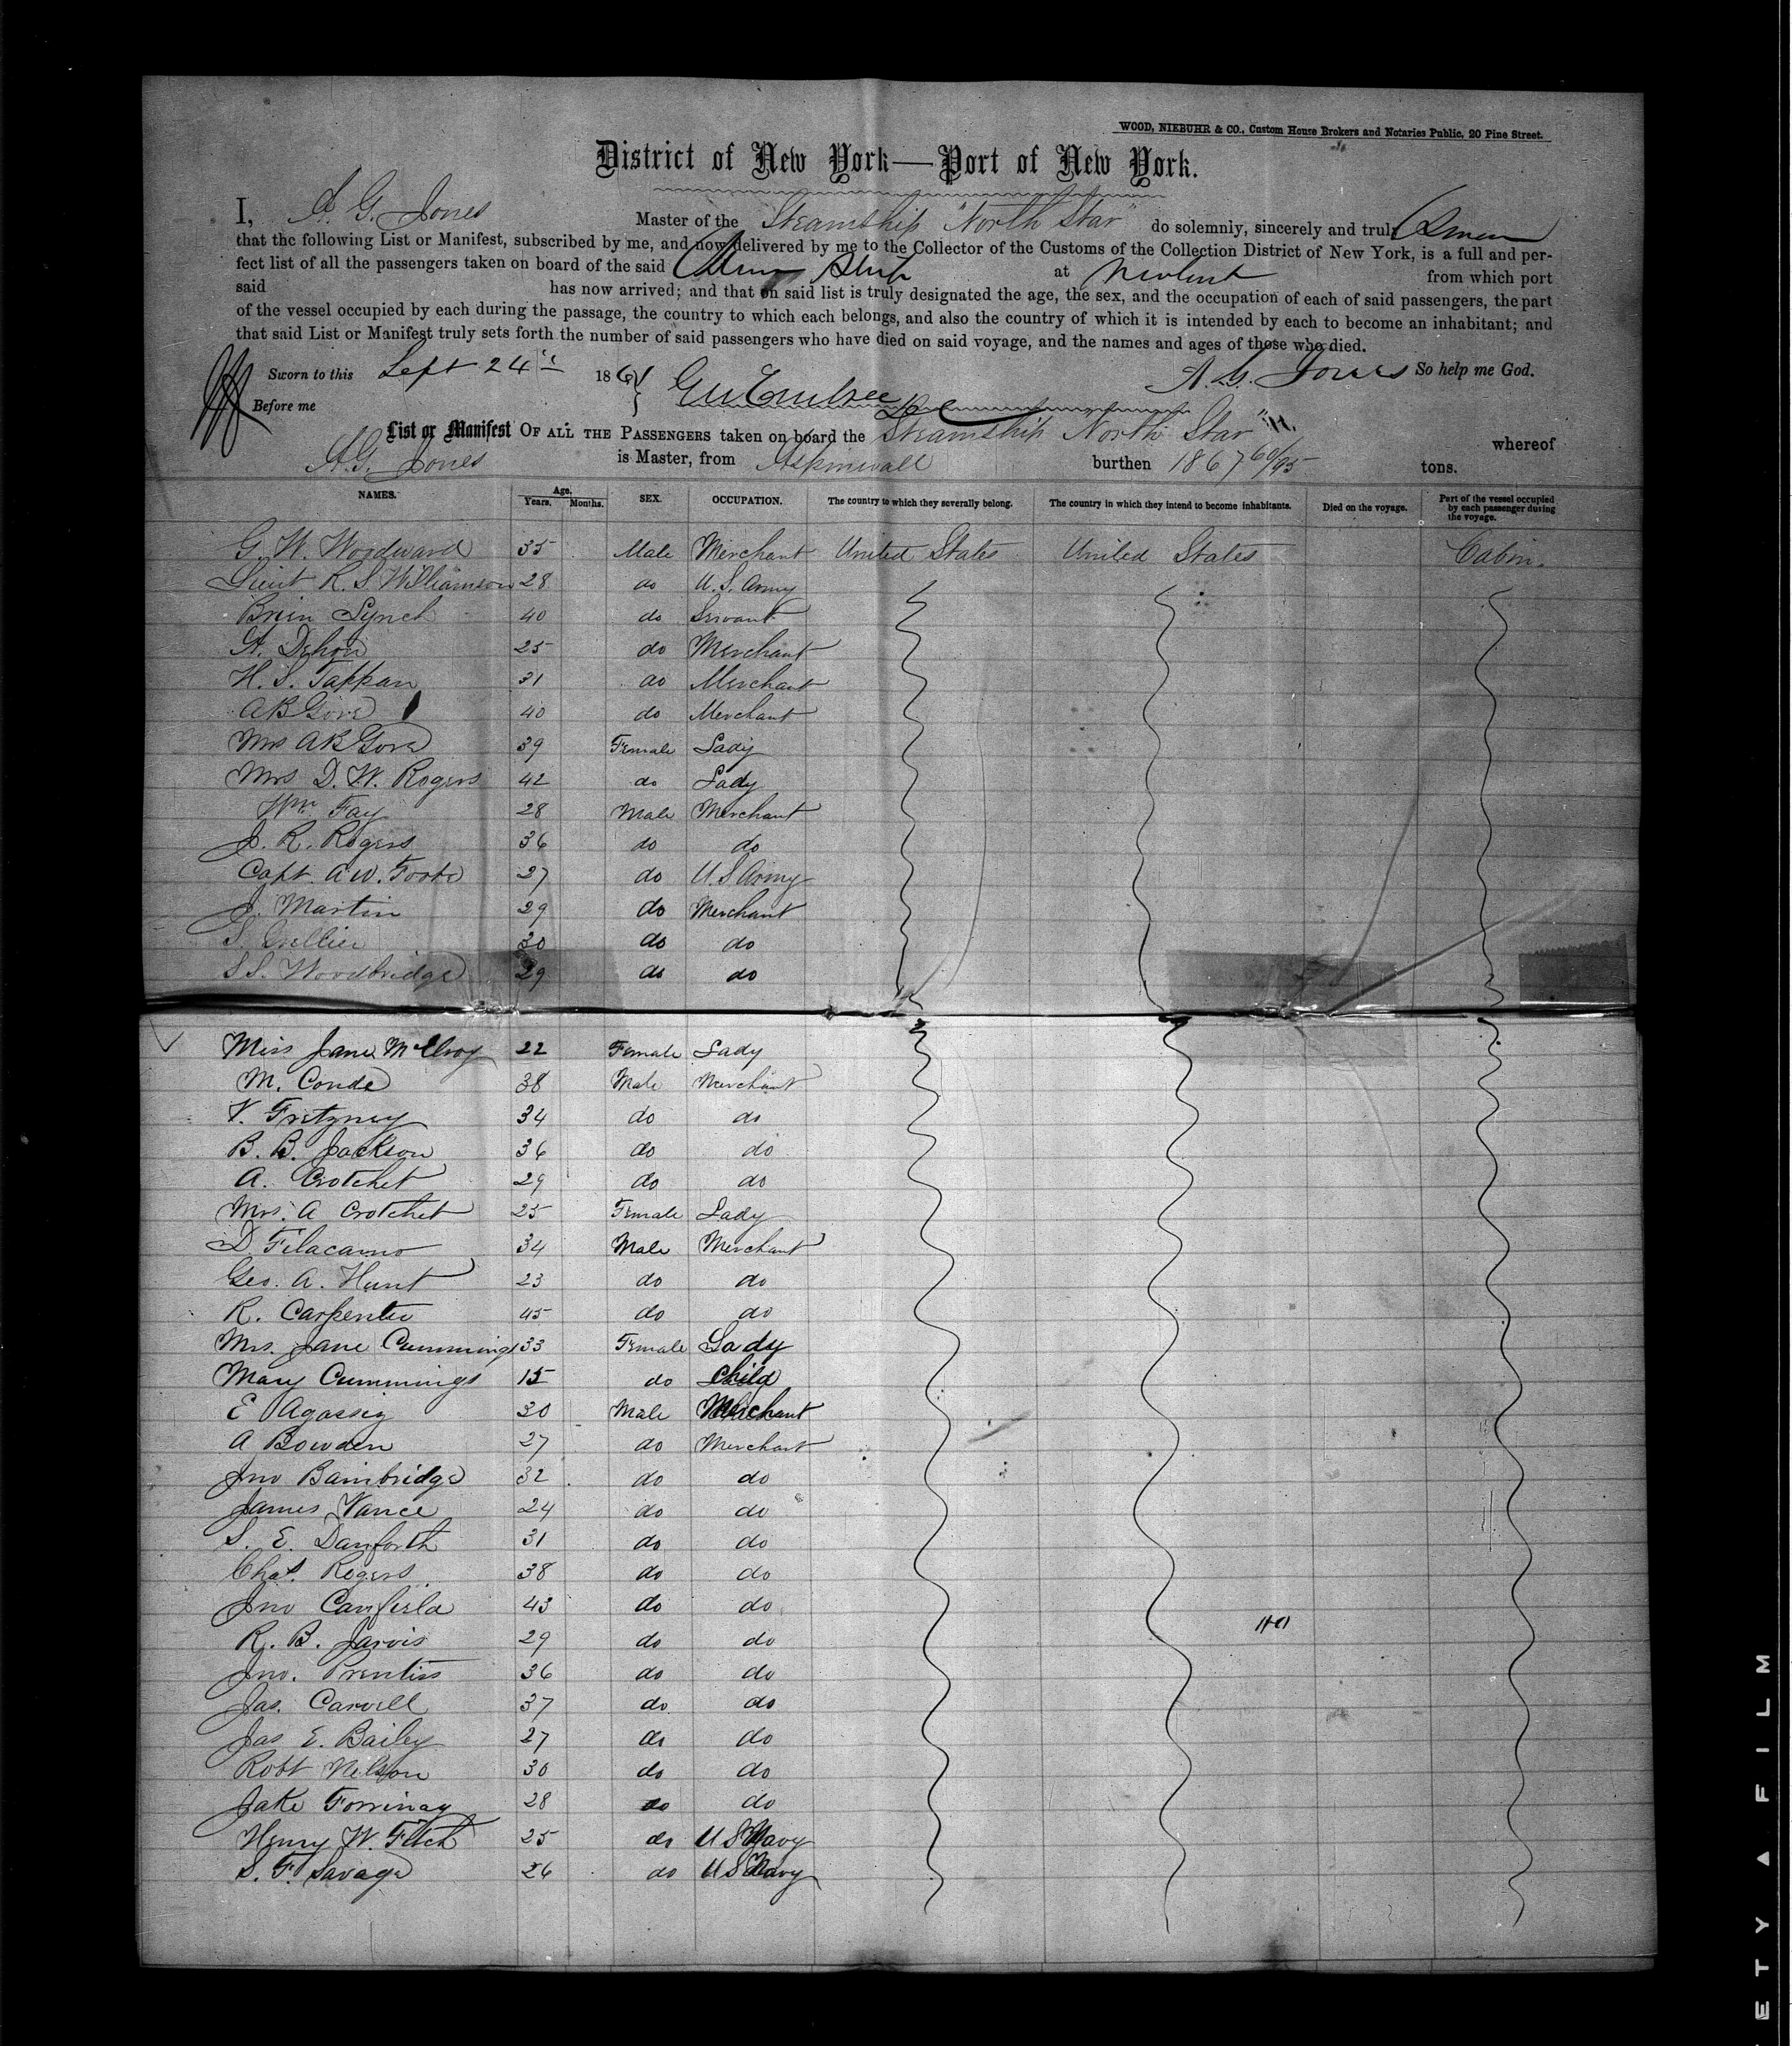 WOOD, NIEBUHR & CO., Custom House Brokers and Notaries Public, 20 Pine Street.
District of New York—Port of New York.
I, A. G. Jones Master of the Steamship "North Star" do solemnly, sincerely and truly swear
that the following List or Manifest, subscribed by me, and now delivered by me to the Collector of the Customs of the Collection District of New York, is a full and per-
fect list of all the passengers taken on board of the said Steam Ship at from which port
said has now arrived; and that on said list is truly designated the age, the sex, and the occupation of each of said passengers, the part
of the vessel occupied by each during the passage, the country to which each belongs, and also the country of which it is intended by each to become an inhabitant; and
that said List or Manifest truly sets forth the number of said passengers who have died on said voyage, and the names and ages of those who died.
Sworn to this Sept 24th 1861 A. G. Jones So help me God.
Before me
List or Manifest OF ALL THE PASSENGERS taken on board the Steamship "North Star" whereof
A. G. Jones is Master, from Aspinwall burthen 1867 60/95 tons.
NAMES. Age. Years. Months. SEX. OCCUPATION. The country to which they severally belong. The country in which they intend to become inhabitants. Died on the voyage. Part of the vessel occupied by each passenger during the voyage.
G. W. Woodward 35 Male Merchant United States United States Cabin.
Lieut R. S Williamson 28 do U. S. Army
Brien Lynch 40 do Servant
A. Dehon 25 do Merchant
H. S. Tappan 31 do Merchant
A B Gove 40 do Merchant
Mrs A B Gove 39 Female Lady
Mrs D. W. Rogers 42 do Lady
Wm Fay 28 Male Merchant
J. R. Rogers 36 do do
Capt. A W. Foote 27 do U. S Army
J. Martin 29 do Merchant
S. Grellier 30 do do
S S. Woodbridge 29 do do
Miss Jane McElroy 22 Female Lady
M. Conde 38 Male Merchant
V. Fretzney 34 do do
B. B. Jackson 36 do do
A. Crotchet 29 do do
Mrs. A Crotchet 25 Female Lady
D. Filacamo 34 Male Merchant
Geo. A. Hunt 23 do do
R. Carpenter 45 do do
Mrs. Jane Cummings 33 Female Lady
Mary Cummings 15 do Child
E Agassiz 30 Male Merchant
A Bowden 27 do Merchant
Jno Bainbridge 32 do do
James Vance 24 do do
S. E. Danforth 31 do do
Chas. Rogers 38 do do
Jno Canfield 43 do do
R. B. Jarvis 29 do do
Jno. Prentiss 36 do do
Jas. Carvell 37 do do
Jas E. Bailey 27 do do
Robt Nelson 30 do do
Jake Forrinay 28 do do
Henry W. Fitch 25 do U S Navy
S. F. Savage 26 do U S Navy
ETY A FILM